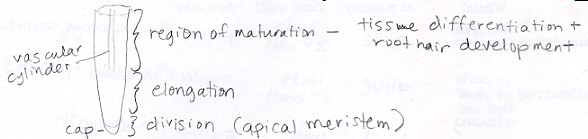 region of maturation - tissue differentiation +
root hair development
vascular
cylinder
elongation
cap
division (apical meristem)